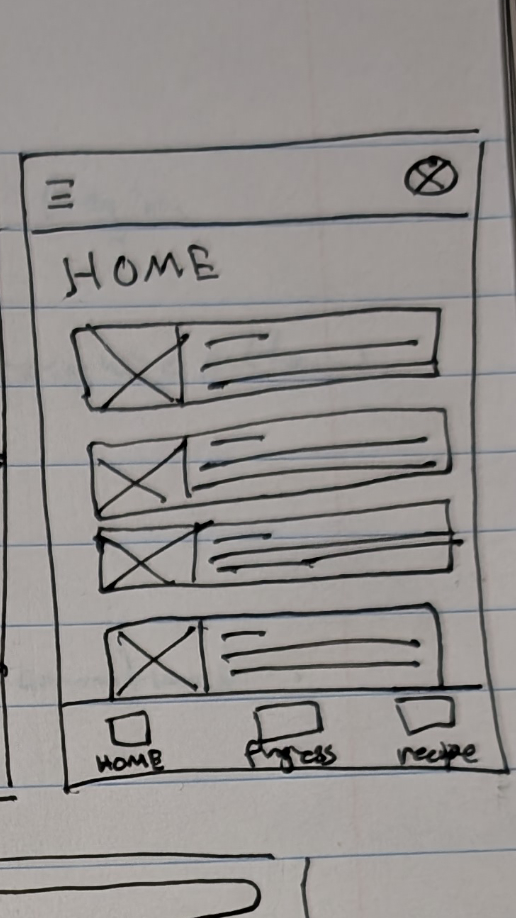 HOME
HOME Prgress recipe